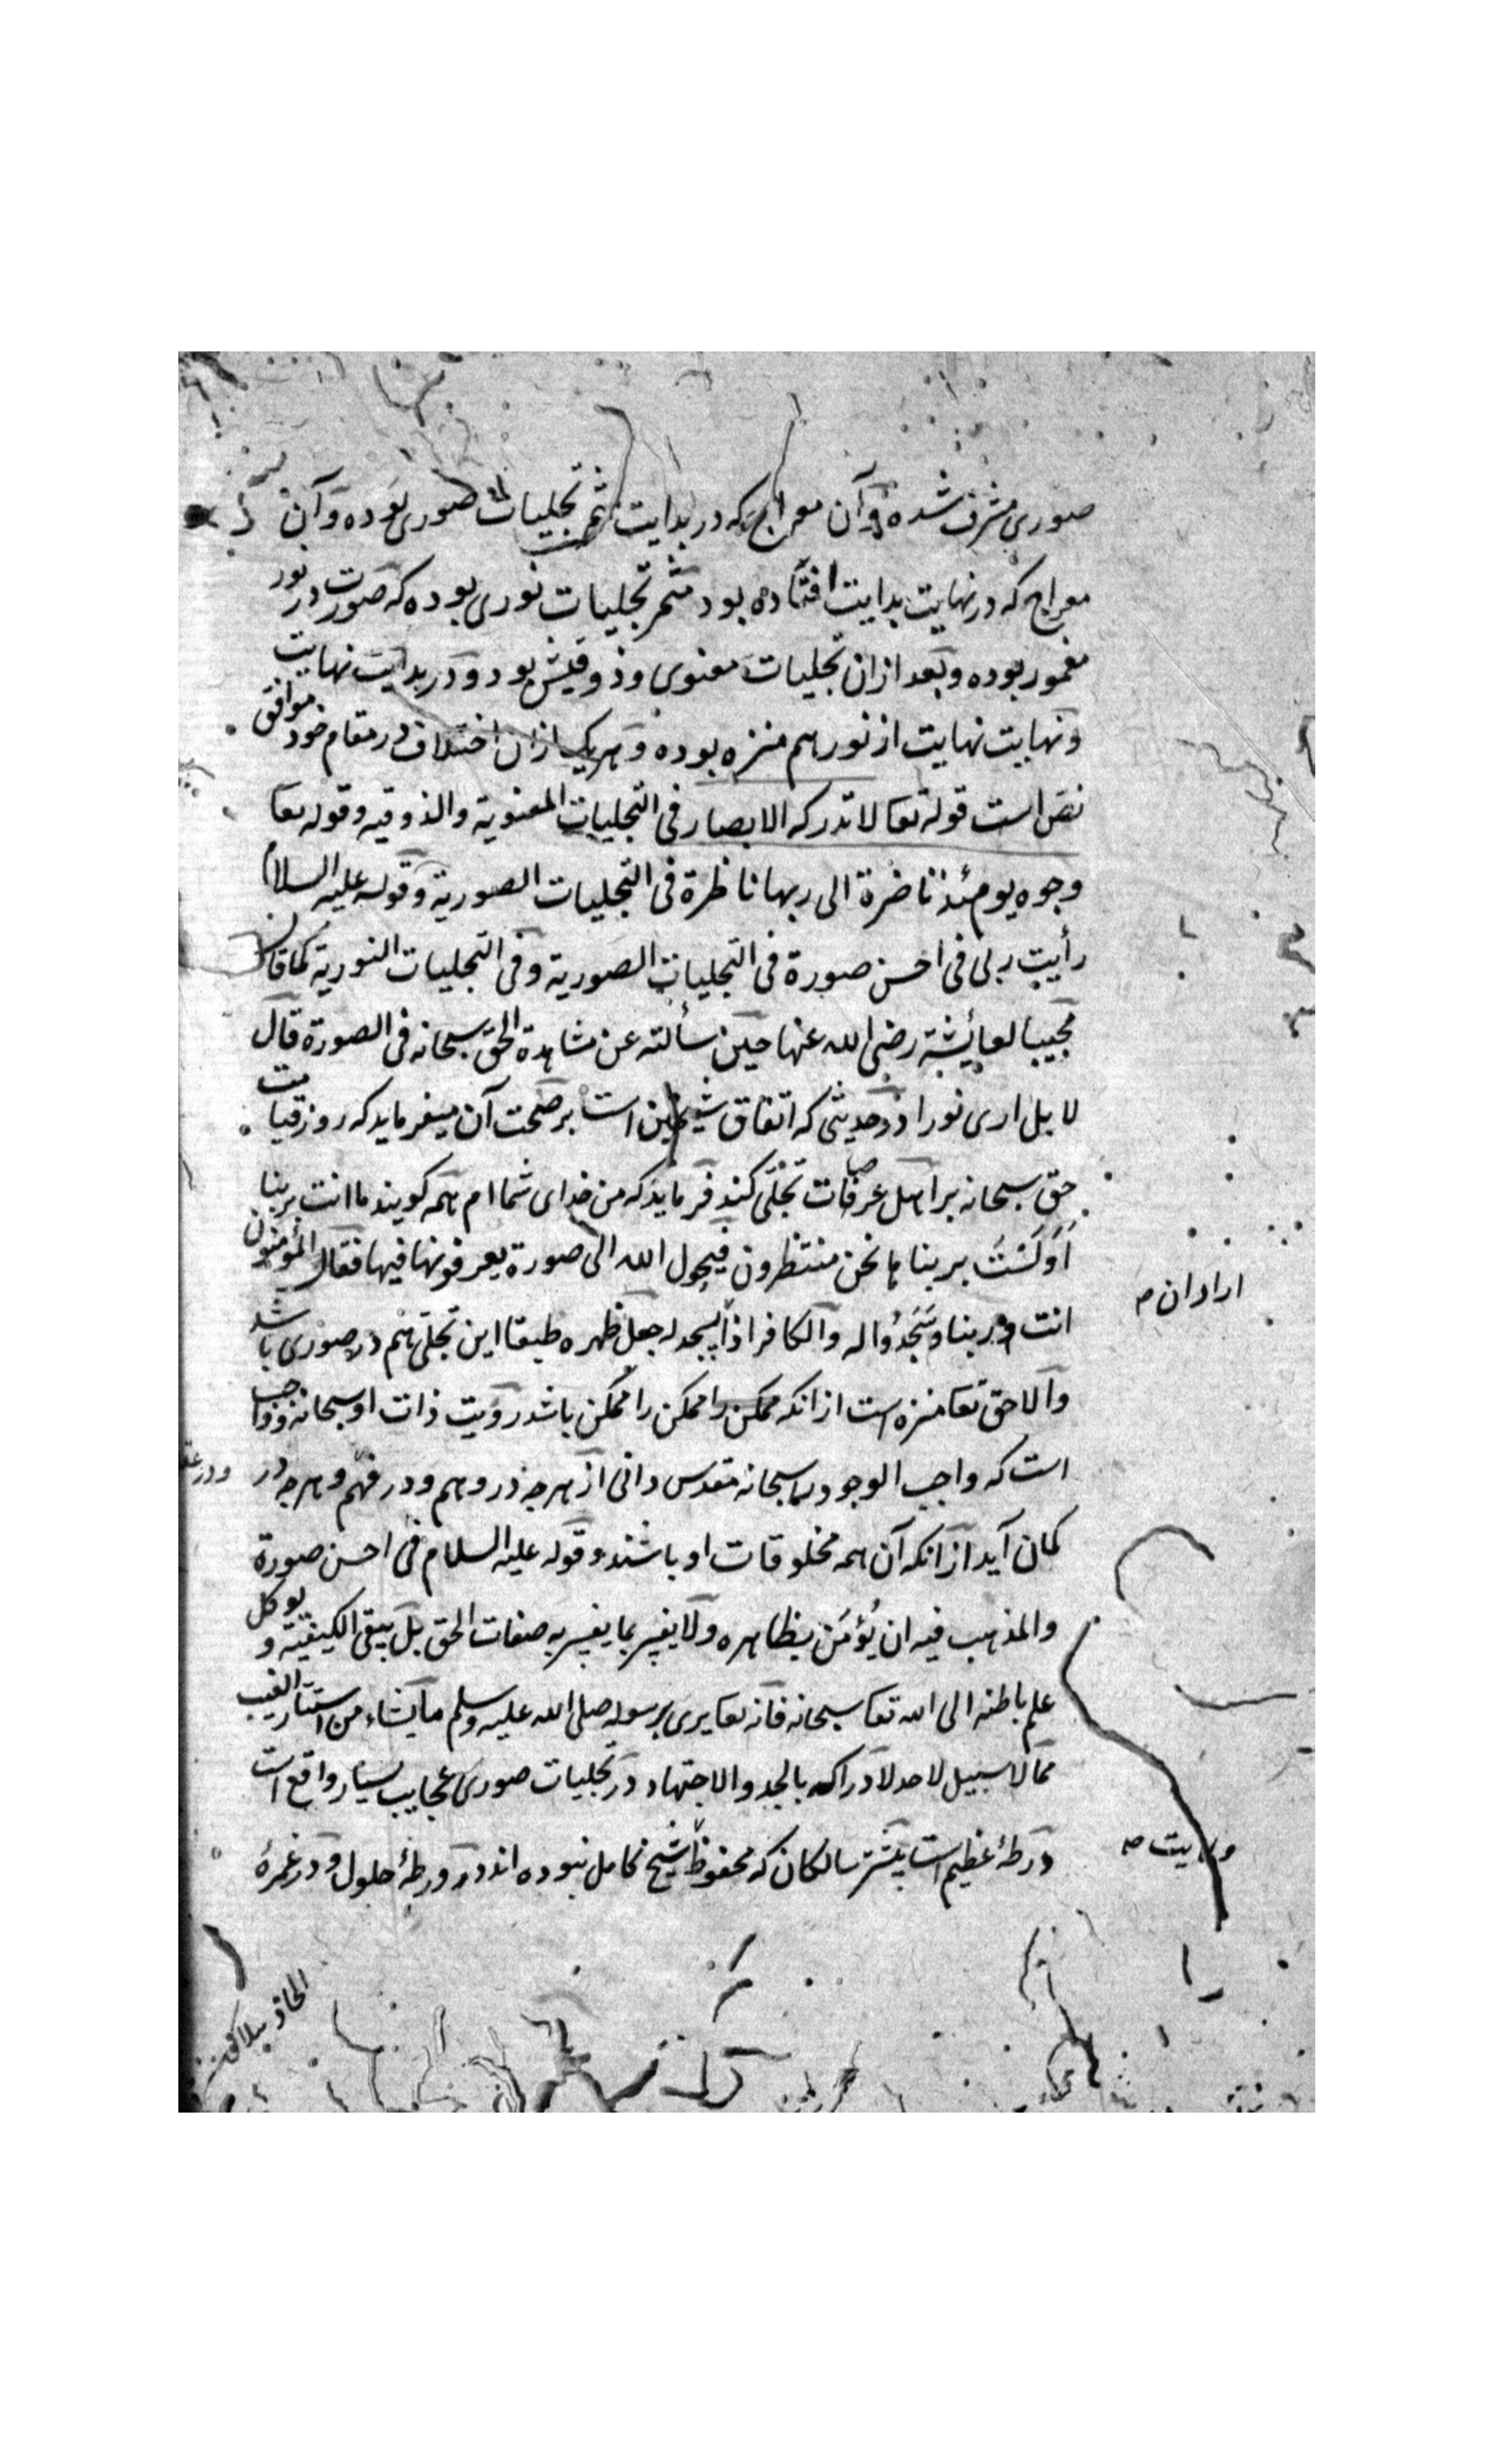 صوری مشرف شده و آن معراج که در بدایت مثمر تجلیات صوری بوده و آن
معراج که در نهایت بدایت افتاده بود مثمر تجلیات نوری بوده که صورت در نور
مغمور بوده و بعد ازان تجلیات معنوی و ذوقیش بود و در بدایت نهایت
و نهایت نهایت از نور هم منزه بوده و هریک ازان اختلاف در مقام خود موافق
نص است قوله تعا لا تدرکه الابصار فی التجلیات المعنویة والذوقیه و قوله تعا
وجوه یومئذ ناضرة الی ربها ناظرة فی التجلیات الصوریة و قوله علیه السلام
رأیت ربی فی احسن صورة فی التجلیات الصوریة و فی التجلیات النوریة کما قال
مجیبا لعایشة رضی الله عنها حین سألته عن مشاهدة الحق سبحانه فی الصورة قال
لا بل اری نورا و در حدیثی که اتفاق شیخین است بر صحت آن میفرماید که روز قیامت
حق سبحانه بر اهل عرصات تجلی کند فرماید که من خدای شما ام همه کویند ما انت بربنا
اَوَلَسْتَ بربنا ها نحن منتظرون فیحول الله الی صورة یعرفونها فیها فقال المؤمنون
انت ربنا وسَجَدُوا له والکافر اذا یسجد له جعل ظهره طبقا این تجلی هم در صوری باشد
والا حق تعا منزه است ازانکه ممکن را ممکن باشد رویت ذات او سبحانه و واجب
است که واجب الوجود را سبحانه مقدس دانی از هرچه در وهم و در فهم و هرچه در
کمان آید ازانکه آن همه مخلوقات او باشند و قوله علیه السلام فی احسن صورة
والمذهب فیه ان یُؤمَن بظاهره ولا یفسر بما یفسر به صفات الحق بل یبقی الکیفیة و یوکل
علم باطنه الی الله تعا سبحانه فانه تعا یری برسوله صلی الله علیه وسلم ما یشاء من استار الغیب
مما لا سبیل لاحد لادراکه بالجد والاجتهاد در تجلیات صوری عجایب بسیار واقع است
ورطهٔ عظیم است بیشتر سالکان که محفوظ شیخ کامل نبوده اند در ورطهٔ حلول و در غمرهٔ